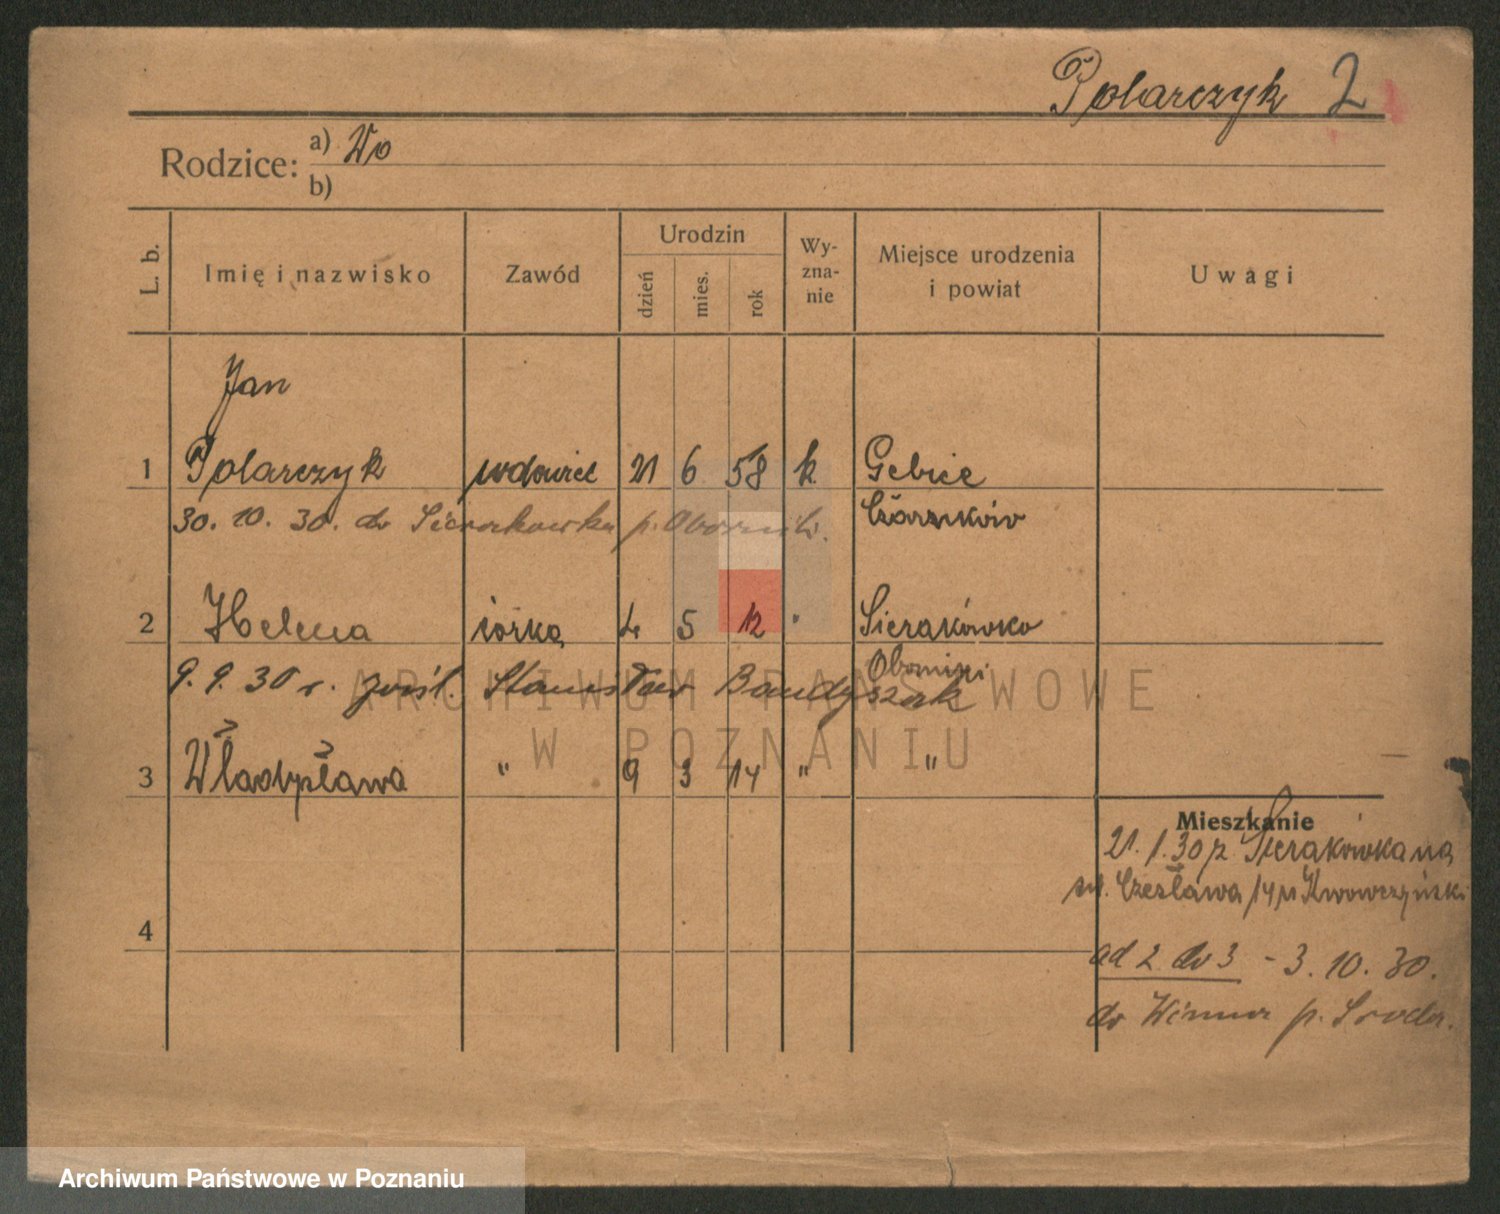 Polarczyk 2
Rodzice: a) Wo
b)
L. b. Imię i nazwisko Zawód Urodzin dzień mies. rok Wy-zna-nie Miejsce urodzenia i powiat Uwagi
Jan
1 Polarczyk wdowiec 21 6 58 k. Gebice
30. 10. 30. do Sierakowka p. Oborniki. Czarnków
2 Helena córka 4 5 12 " Sierakówko
Oborniki
9. 9. 30 r. pośl. Stanisław Bandyszak
3 Władysława " 9 3 14 " "
Mieszkanie
21. 1. 30 z Sierakówka na
św. Czesława 14 p.
4
ad 2 do 3 - 3. 10. 30.
do p. Środa.
ARCHIWUM PAŃSTWOWE
W POZNANIU
Archiwum Państwowe w Poznaniu